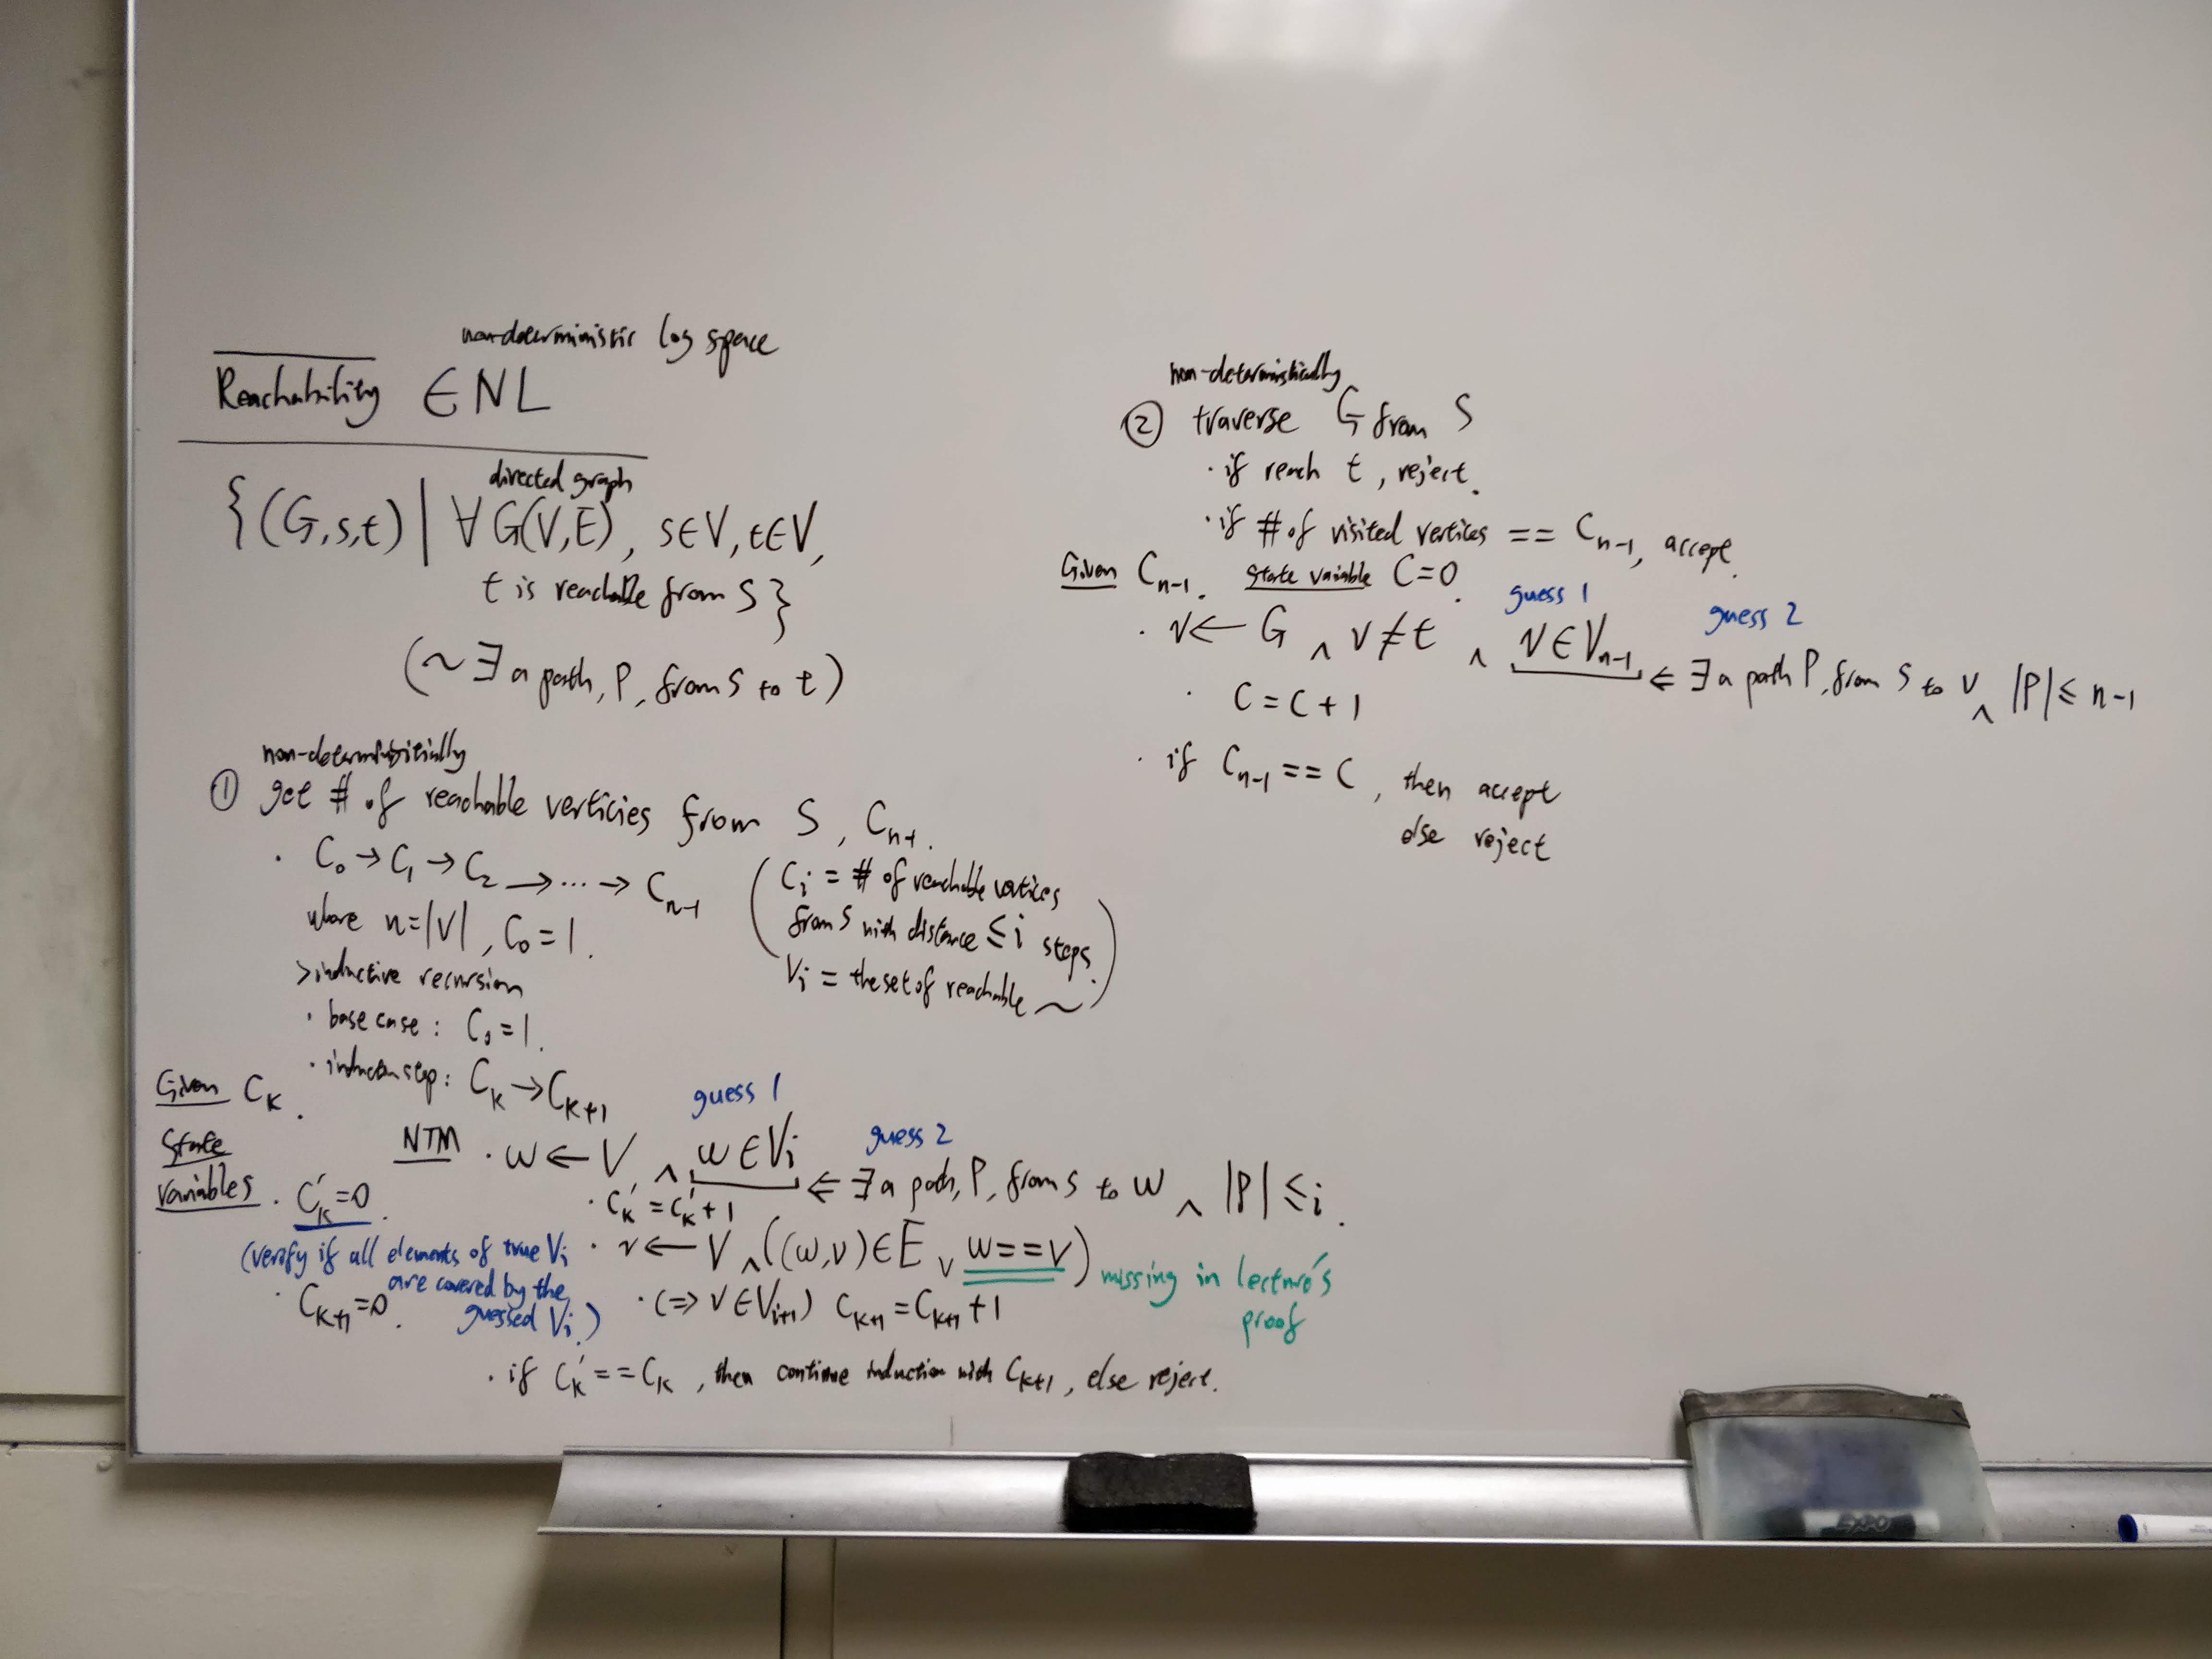 non-deterministic log space
Reachability ∈ NL
directed graph
{(G,s,t) | ∀ G(V,E), s∈V, t∈V,
t is reachable from S}
(~∃ a path, P, from s to t)
non-deterministically
① get # of reachable verticies from S, Cn-1.
· C0 → C1 → C2 → ... → Cn-1
where n=|V|, C0=1.
(Ci = # of reachable vertices
from s with distance ≤ i steps.
Vi = the set of reachable ~)
>inductive recursion
· base case: C0=1.
· induction step: Ck → Ck+1
Given Ck.
State variables
· Ck'=0.
(verify if all elements of true Vi
are covered by the
guessed Vi.)
· Ck+1=0.
guess 1
guess 2
NTM · w ← V ∧ w∈Vi ⇐ ∃ a path, P, from s to w ∧ |P| ≤ i.
· Ck' = Ck' + 1
· v ← V ∧ ((w,v)∈E ∨ w==v)
missing in lecture's
proof
· (⇒ v∈Vi+1) Ck+1 = Ck+1 + 1
· if Ck' == Ck, then continue induction with Ck+1, else reject.
non-deterministically
② traverse G from S
· if reach t, reject.
· if # of visited vertices == Cn-1, accept.
Given Cn-1. State variable C=0.
guess 1
guess 2
· v ← G ∧ v≠t ∧ v∈Vn-1 ⇐ ∃ a path P, from s to v ∧ |P| ≤ n-1
· C = C + 1
· if Cn-1 == C, then accept
else reject
EXPO